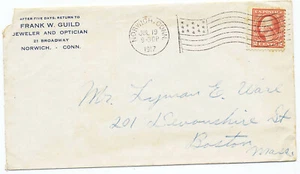 AFTER FIVE DAYS, RETURN TO
FRANK W. GUILD
JEWELER AND OPTICIAN
21 BROADWAY
NORWICH, - CONN.
NORWICH, CONN.
JUL 19
1917
Mr. Lyman E. Ware
201 Devonshire St
Boston
Mass.